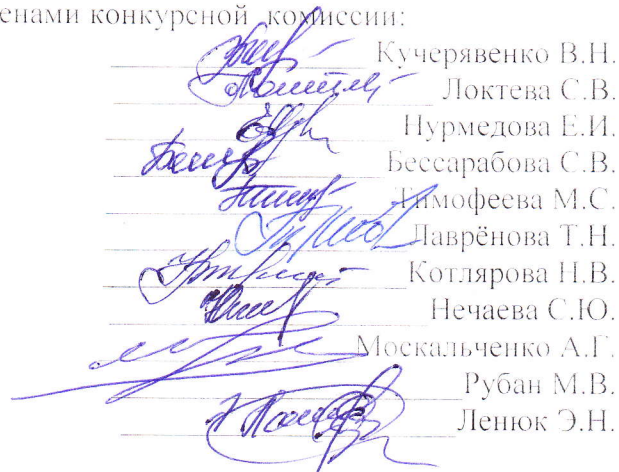 енами конкурсной комиссии:
Кучерявенко В.Н.
Локтева С.В.
Нурмедова Е.И.
Бессарабова С.В.
Тимофеева М.С.
Лаврёнова Т.Н.
Котлярова Н.В.
Нечаева С.Ю.
Москальченко А.Г.
Рубан М.В.
Ленюк Э.Н.